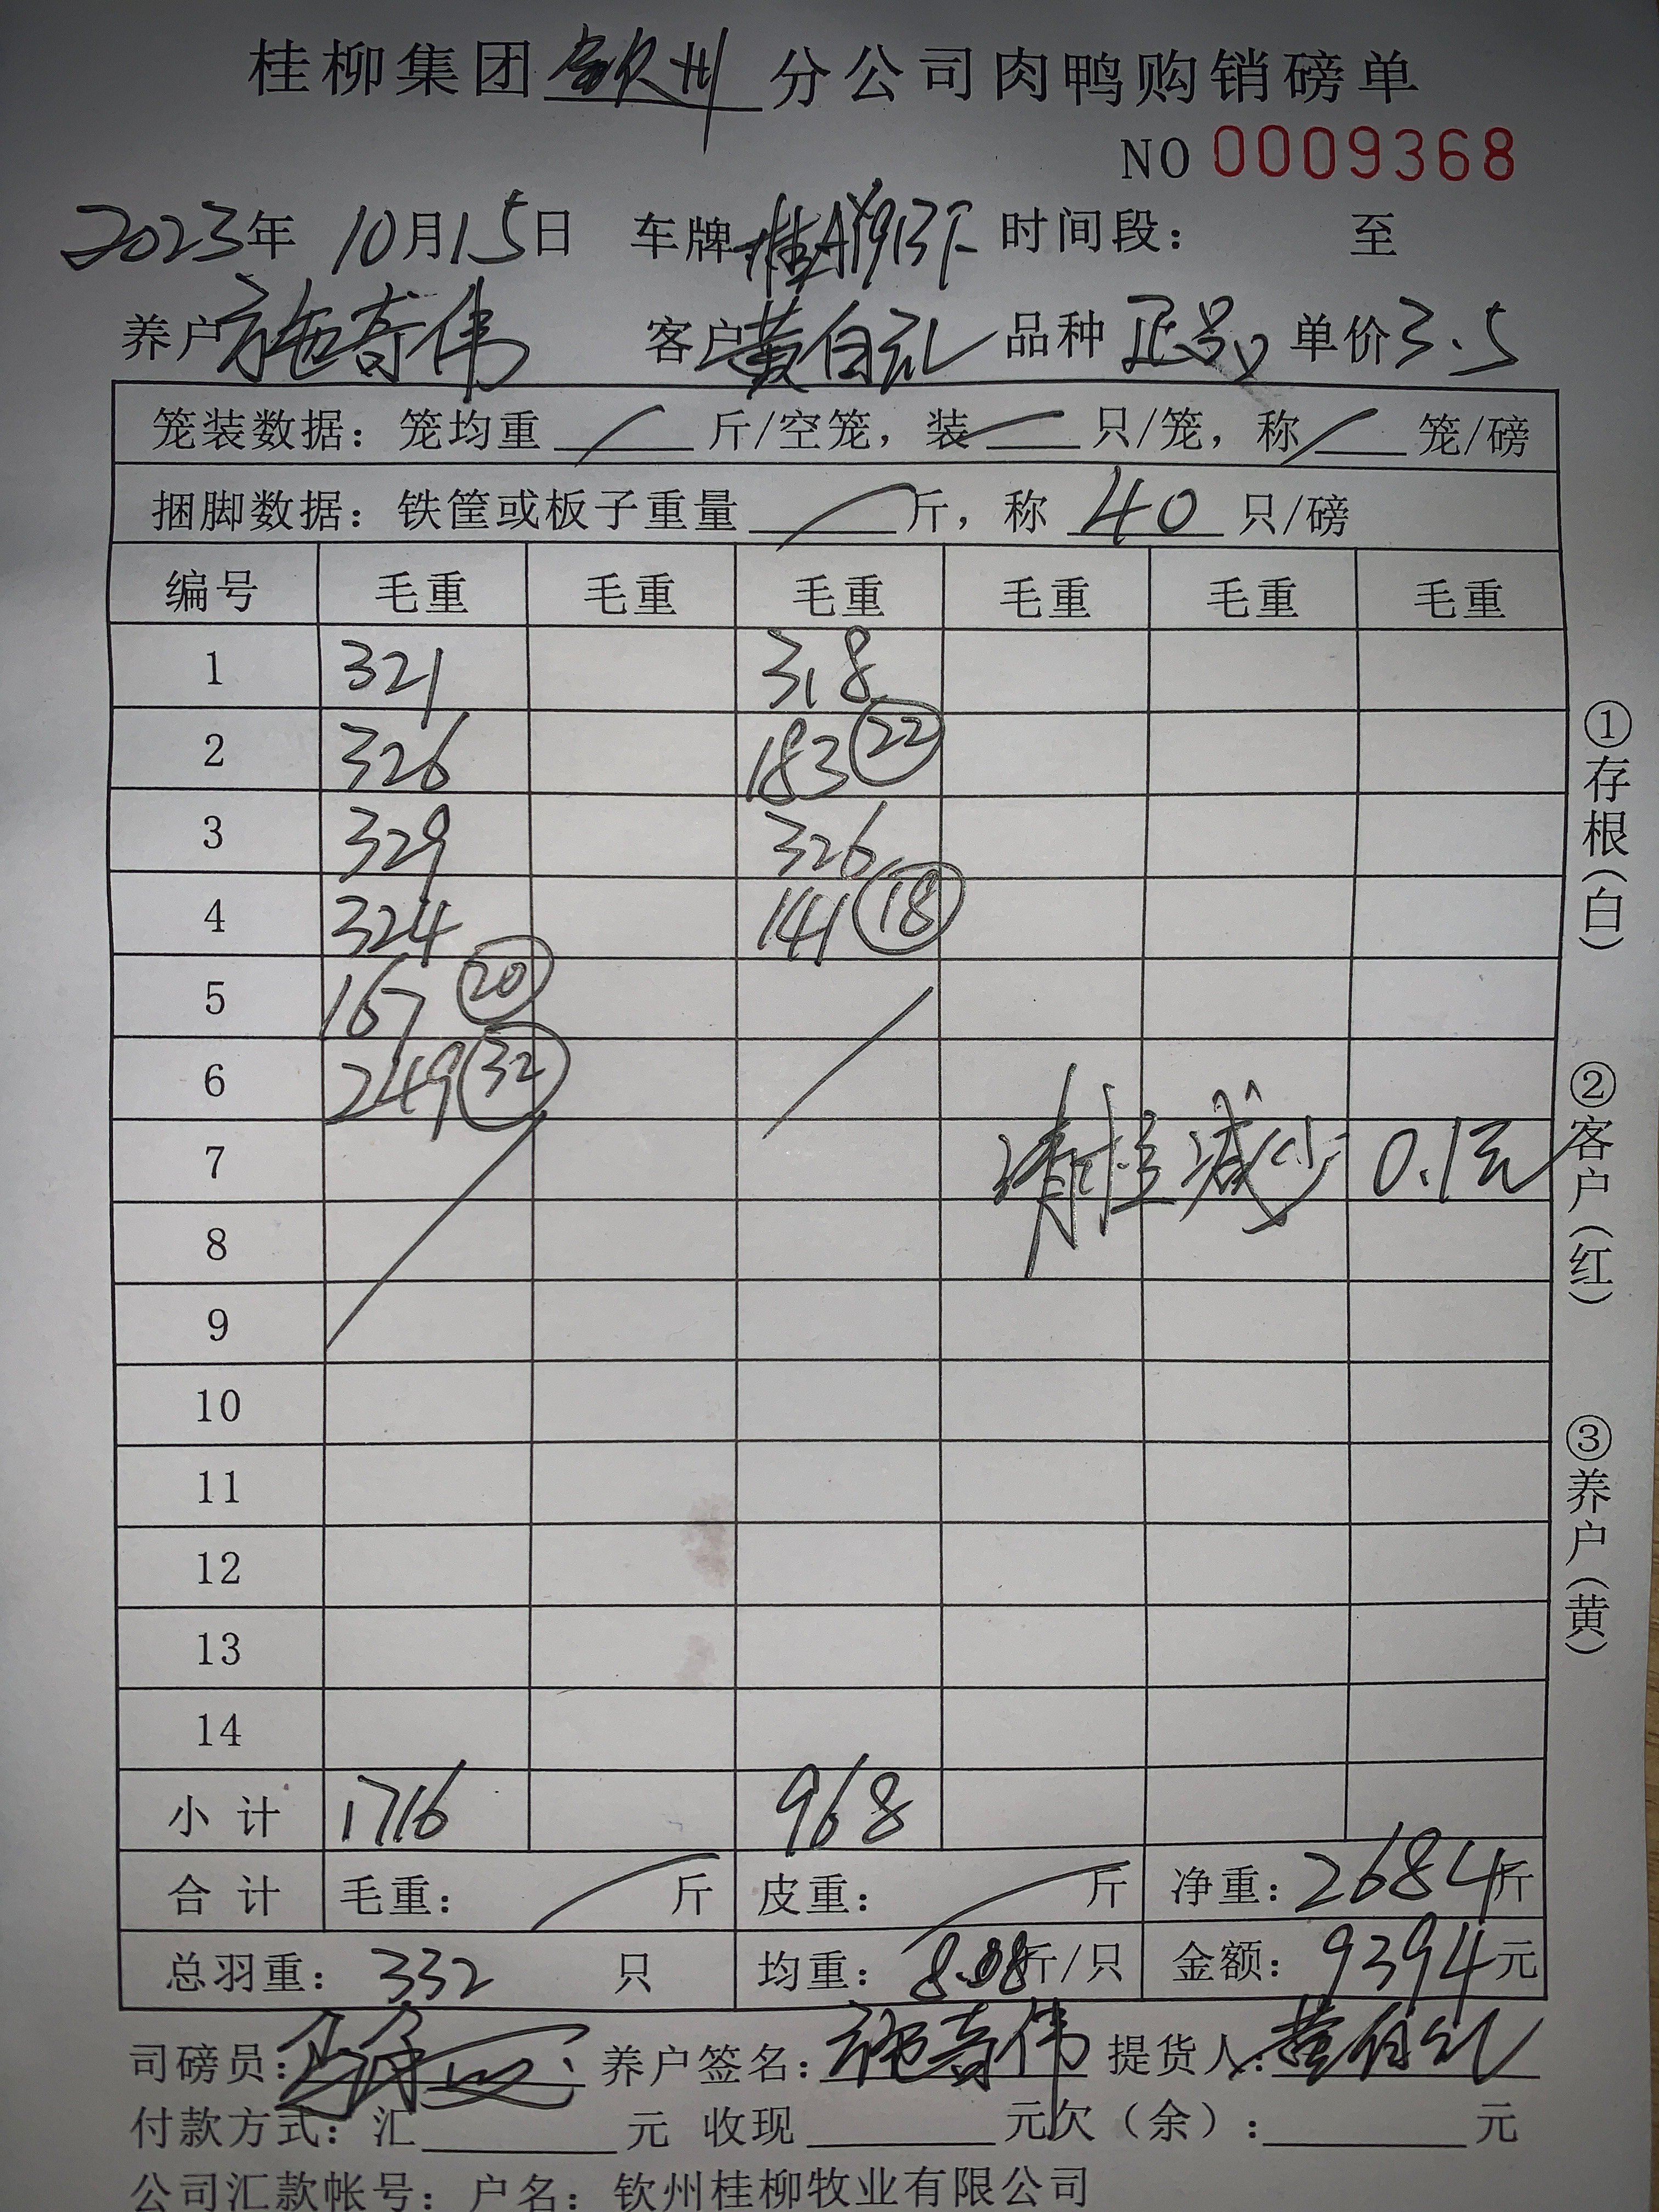 桂柳集团 钦州 分公司肉鸭购销磅单
NO 0009368
2023年 10月15日 车牌 桂A 时间段： 至
养户 施奇伟 客户 黄白 品种 正品 单价 3.5
笼装数据：笼均重 / 斤/空笼，装 / 只/笼，称 / 笼/磅
捆脚数据：铁筐或板子重量 / 斤，称 40 只/磅
编号 毛重 毛重 毛重 毛重 毛重 毛重
1 321 318
2 326 183 (22)
3 329 326
4 324 141 (18)
5 167 (20)
6 249 (32)
7 减少 0.1元
8
9
10
11
12
13
14
小计 1716 968
合计 毛重： / 斤 皮重： / 斤 净重：2684斤
总羽重：332 只 均重：8.08斤/只 金额：9394元
司磅员： 养户签名：施奇伟 提货人：黄
付款方式：汇 元 收现 元欠（余）： 元
公司汇款帐号：户名：钦州桂柳牧业有限公司
①存根（白）
②客户（红）
③养户（黄）